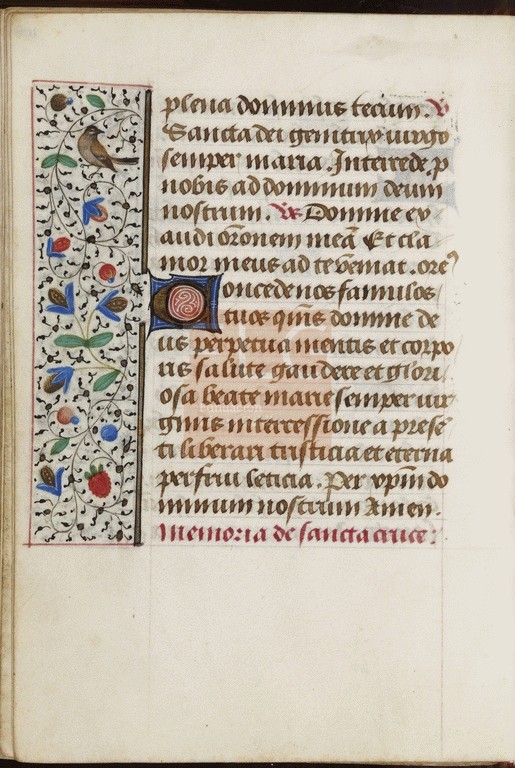 plena dominus tecum. V
Sancta dei genitrix virgo
semper maria. Intercede p
nobis ad dominum deum
nostrum. Vs Domine ex
audi orōnem meā Et cla
mor meus ad te veniat. ore
Concede nos famulos
tuos qm̄s domine de
us perpetua mentis et corpo
ris salute gaudere et glori
osa beate marie semper vir
ginis intercessione a presē
ti liberari tristicia et eterna
perfrui leticia. Per xp̄m do
minum nostrum Amen.
Memoria de sancta cruce.